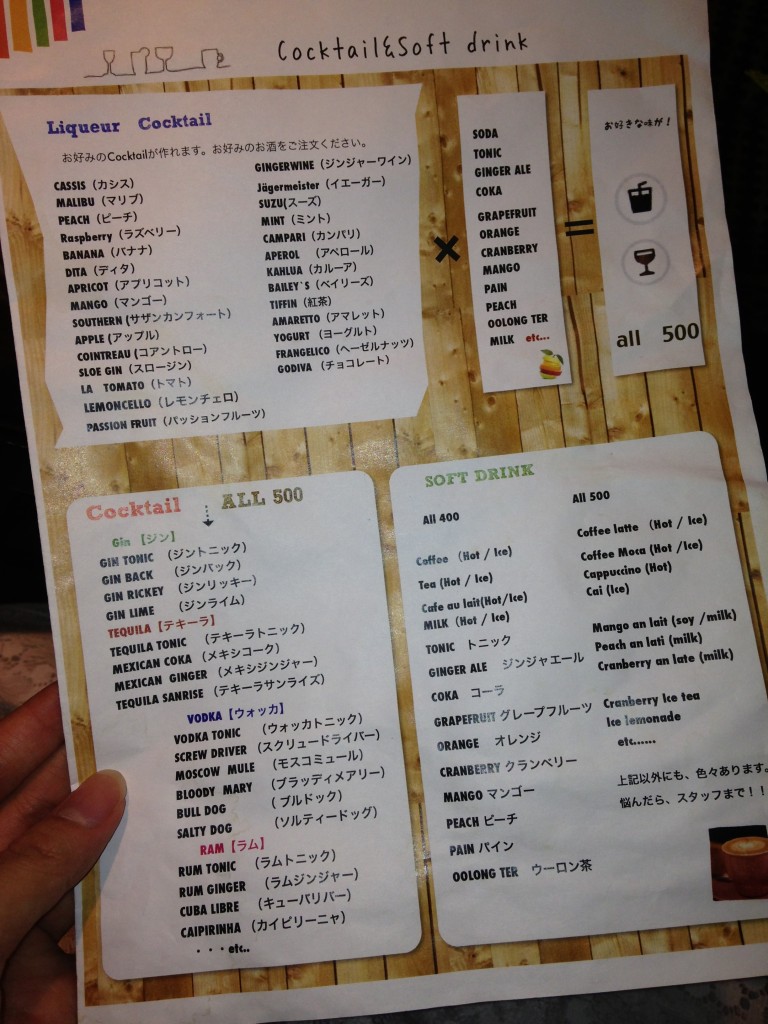 Cocktail&Soft drink
Liqueur Cocktail
お好みのCocktailが作れます。お好みのお酒をご注文ください。
CASSIS（カシス）
MALIBU（マリブ）
PEACH（ピーチ）
Raspberry（ラズベリー）
BANANA（バナナ）
DITA（ディタ）
APRICOT（アプリコット）
MANGO（マンゴー）
SOUTHERN(サザンカンフォート）
APPLE(アップル）
COINTREAU(コアントロー）
SLOE GIN（スロージン）
LA TOMATO（トマト）
LEMONCELLO（レモンチェロ）
PASSION FRUIT（パッションフルーツ）
GINGERWINE（ジンジャーワイン）
Jägermeister（イエーガー）
SUZU(スーズ）
MINT（ミント）
CAMPARI（カンパリ）
APEROL （アペロール）
KAHLUA（カルーア）
BAILEY´S（ベイリーズ）
TIFFIN（紅茶）
AMARETTO（アマレット）
YOGURT（ヨーグルト）
FRANGELICO（ヘーゼルナッツ）
GODIVA（チョコレート）
×
SODA
TONIC
GINGER ALE
COKA
GRAPEFRUIT
ORANGE
CRANBERRY
MANGO
PAIN
PEACH
OOLONG TER
MILK etc...
=
お好きな味が！
all 500
Cocktail ALL 500
Gin【ジン】
GIN TONIC （ジントニック）
GIN BACK （ジンバック）
GIN RICKEY（ジンリッキー）
GIN LIME （ジンライム）
TEQUILA【テキーラ】
TEQUILA TONIC （テキーラトニック）
MEXICAN COKA（メキシコーク）
MEXICAN GINGER（メキシジンジャー）
TEQUILA SANRISE（テキーラサンライズ）
VODKA【ウォッカ】
VODKA TONIC （ウォッカトニック）
SCREW DRIVER（スクリュードライバー）
MOSCOW MULE （モスコミュール）
BLOODY MARY （ブラッディメアリー）
BULL DOG （ブルドック）
SALTY DOG （ソルティードッグ）
RAM【ラム】
RUM TONIC （ラムトニック）
RUM GINGER （ラムジンジャー）
CUBA LIBRE （キューバリバー）
CAIPIRINHA （カイピリーニャ）
・・・etc..
SOFT DRINK
All 400
Coffee （Hot / Ice)
Tea (Hot / Ice)
Cafe au lait(Hot/Ice)
MILK（Hot / Ice)
TONIC トニック
GINGER ALE ジンジャエール
COKA コーラ
GRAPEFRUIT グレープフルーツ
ORANGE オレンジ
CRANBERRY クランベリー
MANGO マンゴー
PEACH ピーチ
PAIN パイン
OOLONG TER ウーロン茶
All 500
Coffee latte （Hot / Ice)
Coffee Moca (Hot /Ice)
Cappuccino (Hot)
Cai (Ice)
Mango an lait (soy /milk)
Peach an lati (milk)
Cranberry an late (milk)
Cranberry Ice tea
Ice lemonade
etc......
上記以外にも、色々あります。
悩んだら、スタッフまで！！